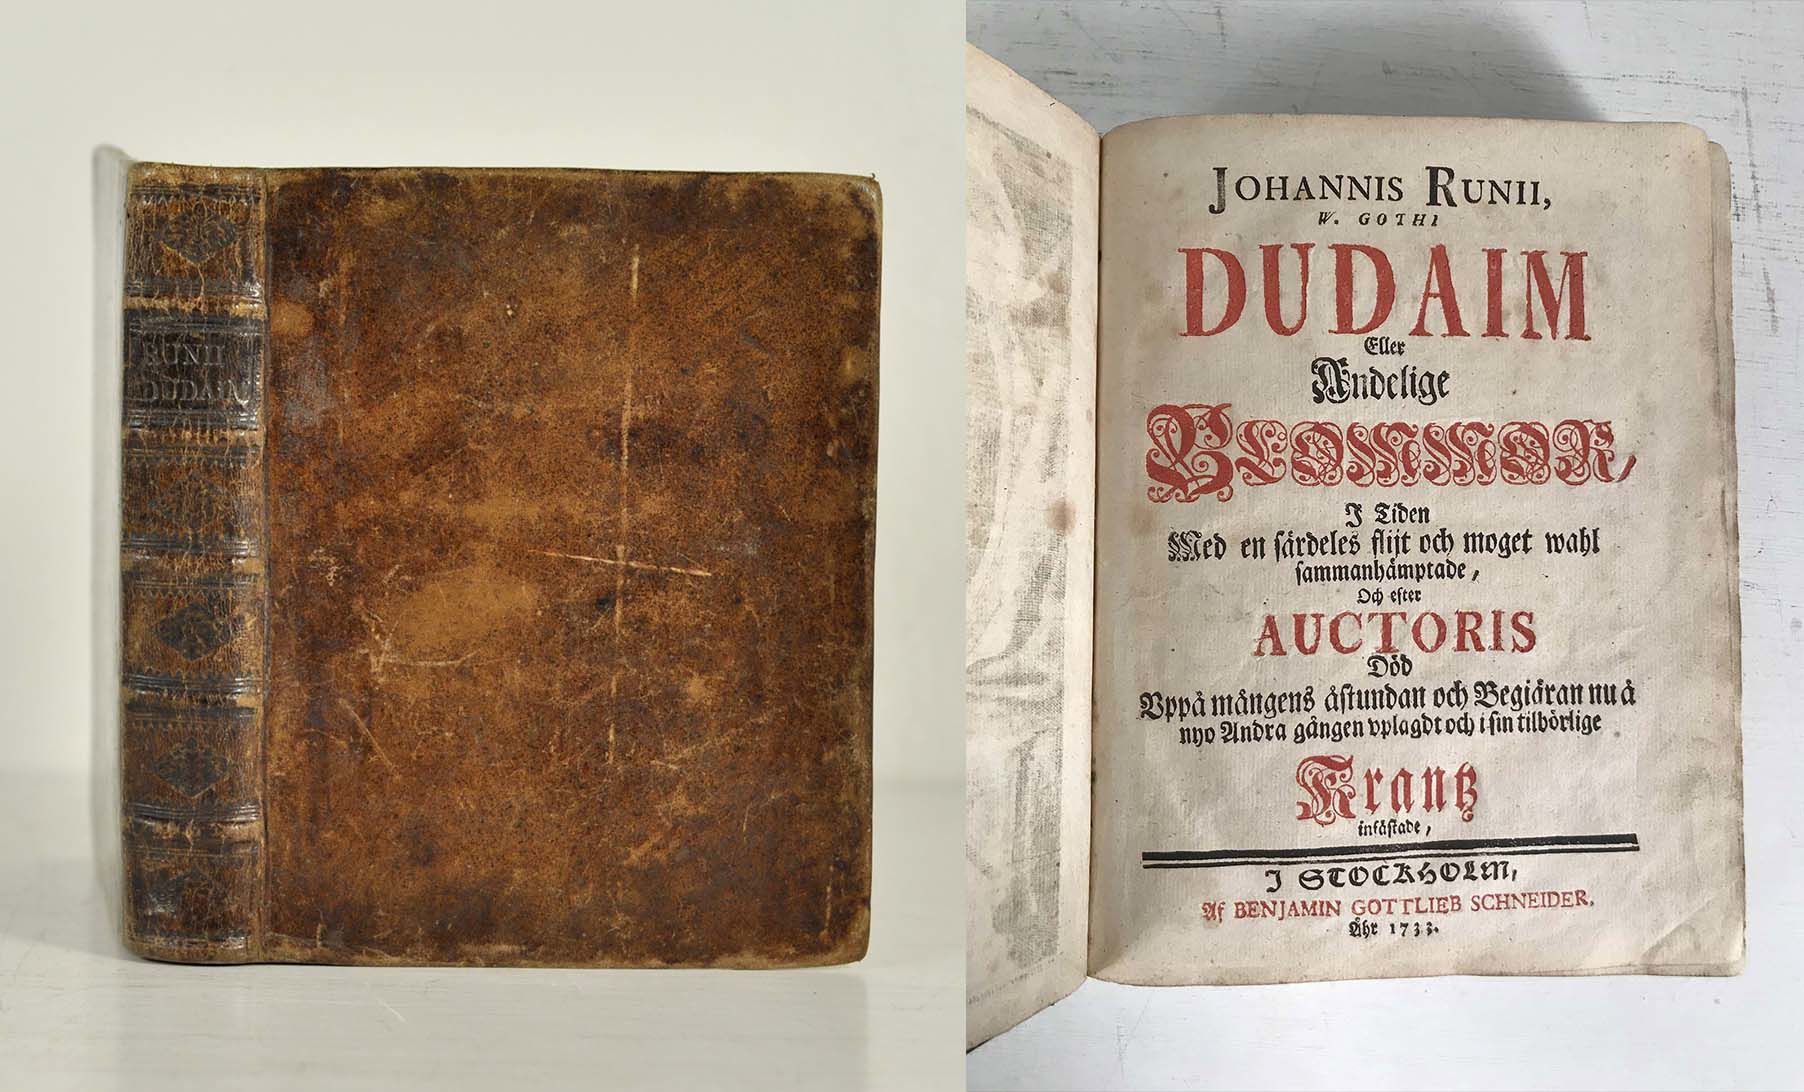 RUNII
DUDAIM
JOHANNIS RUNII,
W. GOTHI
DUDAIM
Eller
Andelige
BLOMMOR,
I Tiden
Med en särdeles flijt och moget wahl
sammanhämptade,
Och efter
AUCTORIS
Död
Vppå mångens åstundan och Begiäran nu å
nyo Andra gången vplagdt och i sin tilbörlige
Krantz
infästade,
I STOCKHOLM,
Af BENJAMIN GOTTLIEB SCHNEIDER,
Åhr 1733.